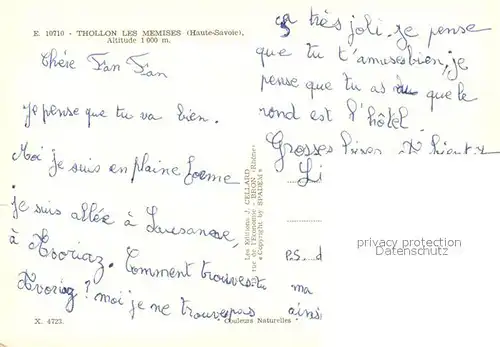 E. 10710 - THOLLON LES MEMISES (Haute-Savoie).
Altitude 1 000 m.
Chére Fan Fan
je pense que tu va bien.
Moi je suis en plaine forme
je suis allée à Lausanne,
à Avoriaz. Comment trouves-tu
Avoriaz? moi je ne trouve pas
X. 4723.
Couleurs Naturelles
Les Editions J. CELLARD
rue de l'Economie - BRON (Rhône)
« Copyright by SPADEM »
ça très joli. je pense
que tu t'amuses bien, je
pense que tu as que le
rond est l'hôtel.
Grosses bises
Li
P.S. d
ma
ainsi
privacy protection
Datenschutz